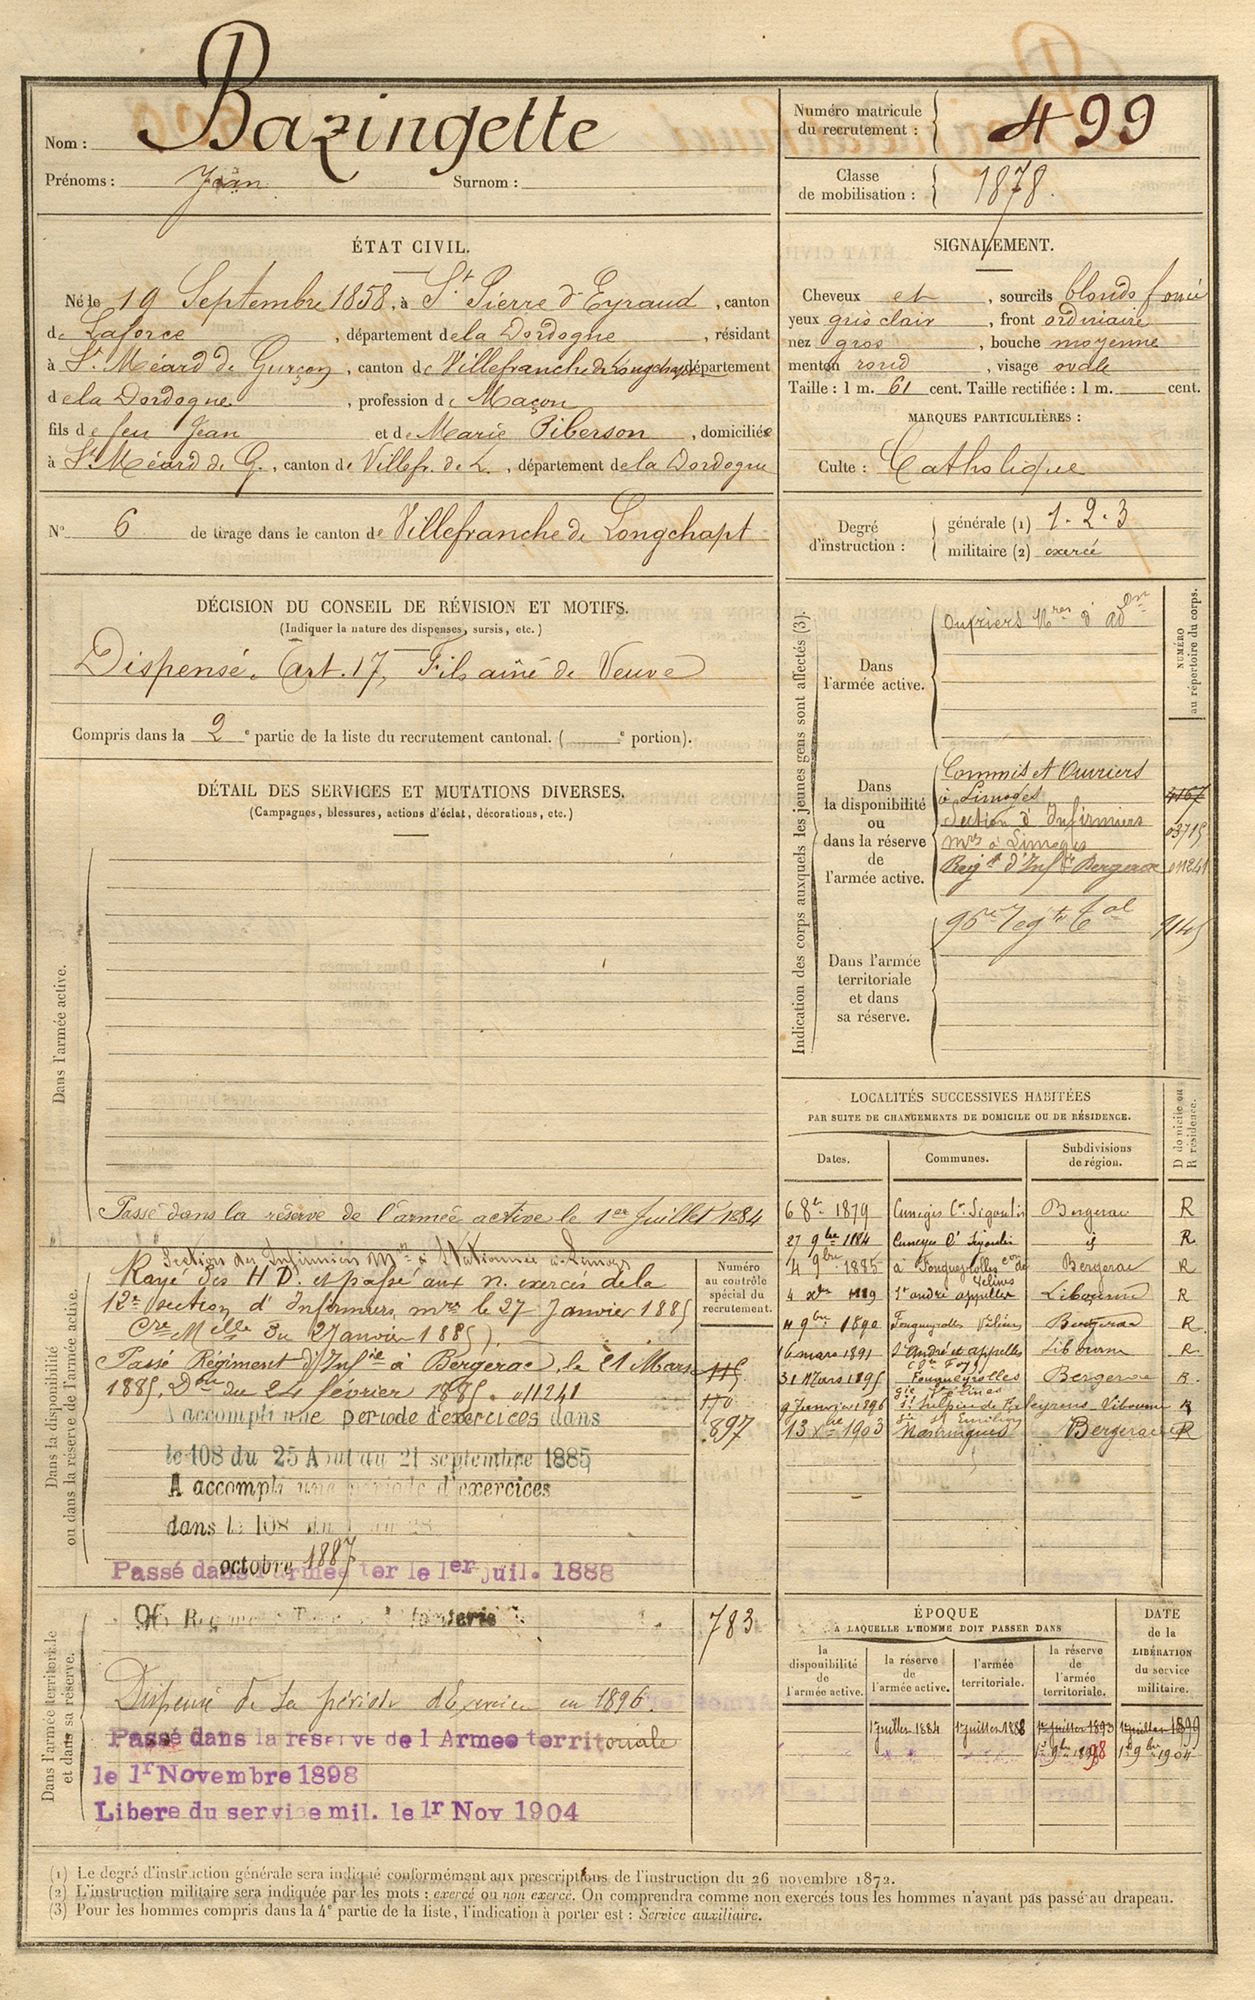 Nom : Bazingette
Prénoms : Jean Surnom :
Numéro matricule du recrutement : 499
Classe de mobilisation : 1878.
ÉTAT CIVIL.
Né le 19 Septembre 1858, à St Pierre d'Eyraud, canton
de Laforce, département de la Dordogne, résidant
à St Méard de Gurçon, canton de Villefranche de Longchapt département
de la Dordogne, profession de Maçon
fils de feu Jean et de Marie Piberson, domiciliée
à St Méard de G., canton de Villefr. de L., département de la Dordogne
SIGNALEMENT.
Cheveux et, sourcils blonds foncé
yeux gris clair, front ordinaire
nez gros, bouche moyenne
menton rond, visage ovale
Taille : 1 m. 61 cent. Taille rectifiée : 1 m. cent.
MARQUES PARTICULIÈRES :
Culte : Catholique
N° 6 de tirage dans le canton de Villefranche de Longchapt
Degré d'instruction : générale (1) 1.2.3
militaire (2) exercé
DÉCISION DU CONSEIL DE RÉVISION ET MOTIFS.
(Indiquer la nature des dispenses, sursis, etc.)
Dispensé. Art. 17, Fils aîné de Veuve
Compris dans la 2e partie de la liste du recrutement cantonal. ( e portion).
DÉTAIL DES SERVICES ET MUTATIONS DIVERSES.
(Campagnes, blessures, actions d'éclat, décorations, etc.)
Dans l'armée active.
Passé dans la réserve de l'armée active le 1er Juillet 1884
Dans la disponibilité
ou dans la réserve de l'armée active.
Section des Infirmiers Mres Stationnée à Limoges
Rayé des H D. et passé aux n. exercés de la
12e section d'Infirmiers mres le 27 Janvier 1885
(Cre Melle du 27 janvier 1885)
Passé Régiment d'Infie à Bergerac, le 21 Mars
1885, Don du 24 février 1885. 011241
A accompli une période d'exercices dans
le 108 du 25 Aout au 21 septembre 1885
A accompli une période d'exercices
dans le 108 du
octobre 1887
Passé dans l'armée ter le 1er juil. 1888
Numéro
au contrôle
spécial du
recrutement.
115
170
897
Dans l'armée territoriale
et dans sa réserve.
96 Régiment Infanterie
783
Dispensé de la période d'Exercice en 1896.
Passé dans la réserve de l Armee territoriale
le 1r Novembre 1898
Libere du service mil. le 1r Nov 1904
Indication des corps auxquels les jeunes gens sont affectés (3).
NUMÉRO
au répertoire du corps.
Dans
l'armée active.
Ouvriers Mres d'adon
Dans
la disponibilité
ou
dans la réserve
de
l'armée active.
Commis et Ouvriers
à Limoges 4167
Section d'Infirmiers
mres à Limoges 03715
Regt d'Infie Bergerac 011241
Dans l'armée
territoriale
et dans
sa réserve.
96e Regt Tal 9145
LOCALITÉS SUCCESSIVES HABITÉES
PAR SUITE DE CHANGEMENTS DE DOMICILE OU DE RÉSIDENCE.
Dates. Communes. Subdivisions de région. D domicile ou R résidence.
6 8bre 1879 Cunèges Con Sigoulès Bergerac R
27 9bre 1884 Cuneges Con Sigoulès id R
4 9bre 1885 à Fougueyrolles con de Velines Bergerac R
4 xbre 1889 St andré appelles Libourne R
11 9bre 1890 Fougueyrolles Vélines Bergerac R
16 mars 1891 St André et appelles Libourne R
Con Foy
31 Mars 1895 Fougueyrolles Bergerac R
Velines
9 Janvier 1896 St Sulpice de Faleyrens Libourne R
St Emilion
13 Xbre 1903 Nastringues Bergerac R
ÉPOQUE
À LAQUELLE L'HOMME DOIT PASSER DANS
la disponibilité de l'armée active.
la réserve de l'armée active.
l'armée territoriale.
la réserve de l'armée territoriale.
DATE de la LIBÉRATION du service militaire.
1 juillet 1884 1 juillet 1888 1 juillet 1893 1 juillet 1899
1er 9bre 1898 1er 9bre 1904
(1) Le degré d'instruction générale sera indiqué conformément aux prescriptions de l'instruction du 26 novembre 1872.
(2) L'instruction militaire sera indiquée par les mots : exercé ou non exercé. On comprendra comme non exercés tous les hommes n'ayant pas passé au drapeau.
(3) Pour les hommes compris dans la 4e partie de la liste, l'indication à porter est : Service auxiliaire.